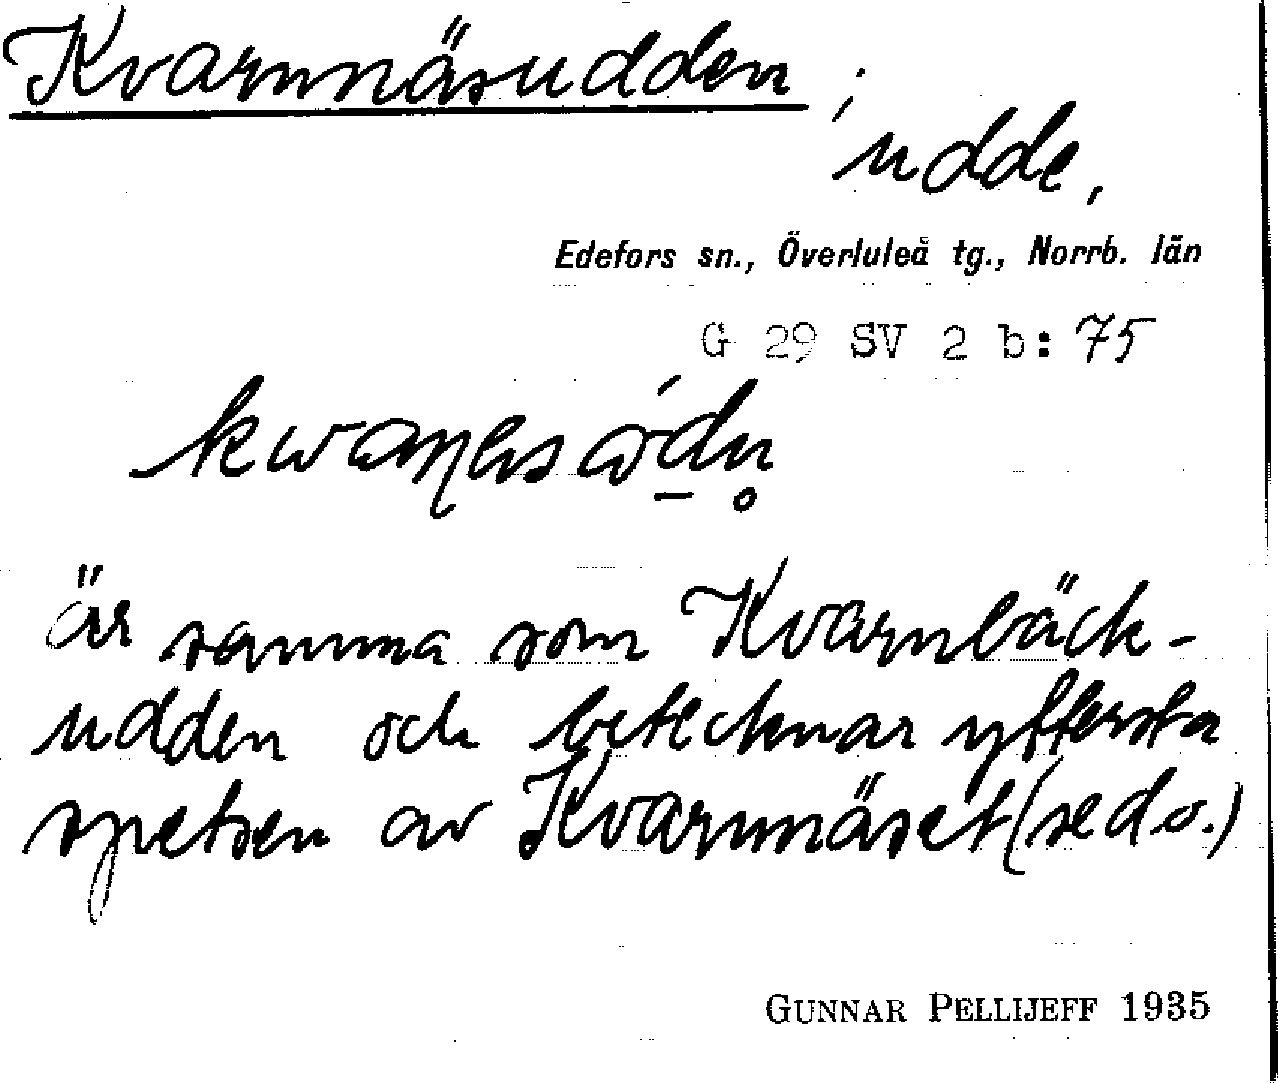 Kvarnnäsudden;
udde,
Edefors sn., Överluleå tg., Norrb. län
G 29 SV 2 b: 75
är samma som Kvarnbäck-
udden och betecknar yttersta
spetsen av Kvarnnäset (se d.o.)
GUNNAR PELLIJEFF 1935